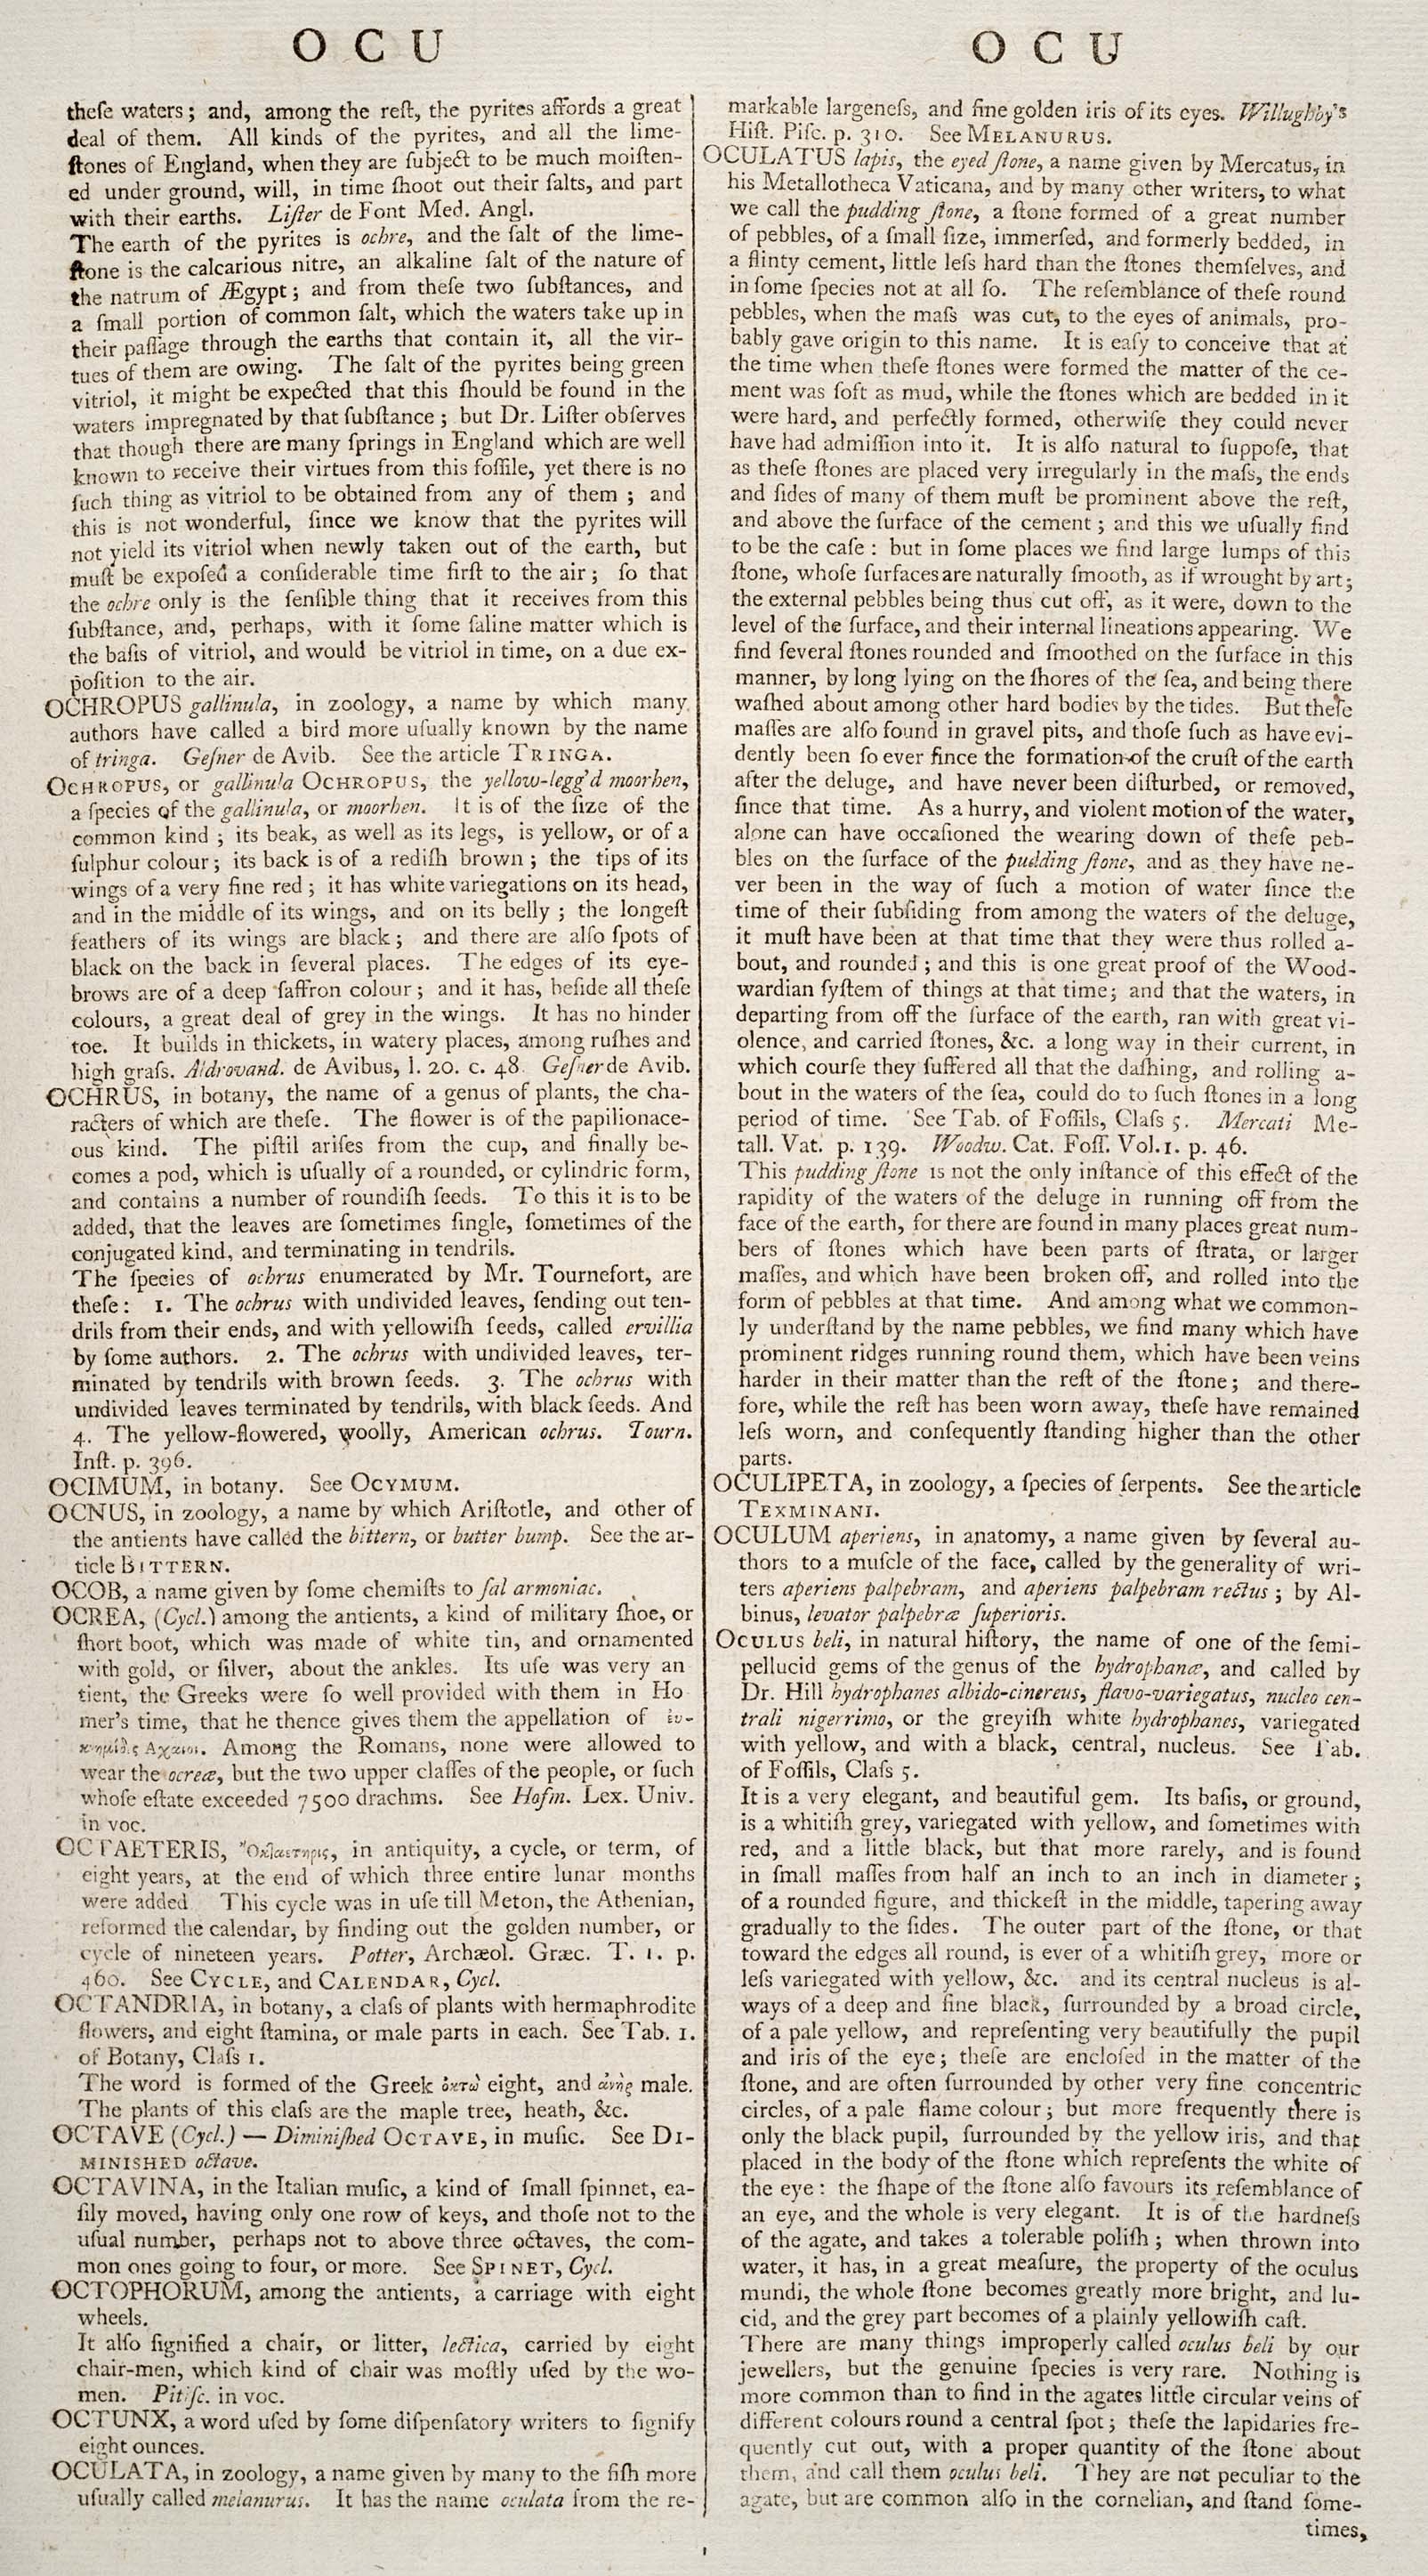 O C U
theſe waters; and, among the reſt, the pyrites affords a great
deal of them. All kinds of the pyrites, and all the lime-
ſtones of England, when they are ſubject to be much moiſten-
ed under ground, will, in time ſhoot out their ſalts, and part
with their earths. Liſter de Font Med. Angl.
The earth of the pyrites is ochre, and the ſalt of the lime-
ſtone is the calcarious nitre, an alkaline ſalt of the nature of
the natrum of Ægypt; and from theſe two ſubſtances, and
a ſmall portion of common ſalt, which the waters take up in
their paſſage through the earths that contain it, all the vir-
tues of them are owing. The ſalt of the pyrites being green
vitriol, it might be expected that this ſhould be found in the
waters impregnated by that ſubſtance; but Dr. Liſter obſerves
that though there are many ſprings in England which are well
known to receive their virtues from this foſſile, yet there is no
ſuch thing as vitriol to be obtained from any of them; and
this is not wonderful, ſince we know that the pyrites will
not yield its vitriol when newly taken out of the earth, but
muſt be expoſed a conſiderable time firſt to the air; ſo that
the ochre only is the ſenſible thing that it receives from this
ſubſtance, and, perhaps, with it ſome ſaline matter which is
the baſis of vitriol, and would be vitriol in time, on a due ex-
poſition to the air.
OCHROPUS gallinula, in zoology, a name by which many
authors have called a bird more uſually known by the name
of tringa. Geſner de Avib. See the article TRINGA.
OCHROPUS, or gallinula OCHROPUS, the yellow-legg'd moorhen,
a ſpecies of the gallinula, or moorhen. It is of the ſize of the
common kind; its beak, as well as its legs, is yellow, or of a
ſulphur colour; its back is of a rediſh brown; the tips of its
wings of a very fine red; it has white variegations on its head,
and in the middle of its wings, and on its belly; the longeſt
feathers of its wings are black; and there are alſo ſpots of
black on the back in ſeveral places. The edges of its eye-
brows are of a deep ſaffron colour; and it has, beſide all theſe
colours, a great deal of grey in the wings. It has no hinder
toe. It builds in thickets, in watery places, among ruſhes and
high graſs. Aldrovand. de Avibus, l. 20. c. 48. Geſner de Avib.
OCHRUS, in botany, the name of a genus of plants, the cha-
racters of which are theſe. The flower is of the papilionace-
ous kind. The piſtil ariſes from the cup, and finally be-
comes a pod, which is uſually of a rounded, or cylindric form,
and contains a number of roundiſh ſeeds. To this it is to be
added, that the leaves are ſometimes ſingle, ſometimes of the
conjugated kind, and terminating in tendrils.
The ſpecies of ochrus enumerated by Mr. Tournefort, are
theſe: 1. The ochrus with undivided leaves, ſending out ten-
drils from their ends, and with yellowiſh ſeeds, called ervillia
by ſome authors. 2. The ochrus with undivided leaves, ter-
minated by tendrils with brown ſeeds. 3. The ochrus with
undivided leaves terminated by tendrils, with black ſeeds. And
4. The yellow-flowered, woolly, American ochrus. Tourn.
Inſt. p. 396.
OCIMUM, in botany. See OCYMUM.
OCNUS, in zoology, a name by which Ariſtotle, and other of
the antients have called the bittern, or butter bump. See the ar-
ticle BITTERN.
OCOB, a name given by ſome chemiſts to ſal armoniac.
OCREA, (Cycl.) among the antients, a kind of military ſhoe, or
ſhort boot, which was made of white tin, and ornamented
with gold, or ſilver, about the ankles. Its uſe was very an
tient, the Greeks were ſo well provided with them in Ho
mer's time, that he thence gives them the appellation of ἐυ-
κνημιδες Αχαιοι. Among the Romans, none were allowed to
wear the ocreæ, but the two upper claſſes of the people, or ſuch
whoſe eſtate exceeded 7500 drachms. See Hofm. Lex. Univ.
in voc.
OCTAETERIS, Ὀκταετηρις, in antiquity, a cycle, or term, of
eight years, at the end of which three entire lunar months
were added. This cycle was in uſe till Meton, the Athenian,
reformed the calendar, by finding out the golden number, or
cycle of nineteen years. Potter, Archæol. Græc. T. 1. p.
460. See CYCLE, and CALENDAR, Cycl.
OCTANDRIA, in botany, a claſs of plants with hermaphrodite
flowers, and eight ſtamina, or male parts in each. See Tab. 1.
of Botany, Claſs 1.
The word is formed of the Greek ὀκτὼ eight, and ἀνὴρ male.
The plants of this claſs are the maple tree, heath, &c.
OCTAVE (Cycl.) — Diminiſhed OCTAVE, in muſic. See DI-
MINISHED octave.
OCTAVINA, in the Italian muſic, a kind of ſmall ſpinnet, ea-
ſily moved, having only one row of keys, and thoſe not to the
uſual number, perhaps not to above three octaves, the com-
mon ones going to four, or more. See SPINET, Cycl.
OCTOPHORUM, among the antients, a carriage with eight
wheels.
It alſo ſignified a chair, or litter, lectica, carried by eight
chair-men, which kind of chair was moſtly uſed by the wo-
men. Pitiſc. in voc.
OCTUNX, a word uſed by ſome diſpenſatory writers to ſignify
eight ounces.
OCULATA, in zoology, a name given by many to the fiſh more
uſually called melanurus. It has the name oculata from the re-
O C U
markable largeneſs, and fine golden iris of its eyes. Willughby's
Hiſt. Piſc. p. 310. See MELANURUS.
OCULATUS lapis, the eyed ſtone, a name given by Mercatus, in
his Metallotheca Vaticana, and by many other writers, to what
we call the pudding ſtone, a ſtone formed of a great number
of pebbles, of a ſmall ſize, immerſed, and formerly bedded, in
a flinty cement, little leſs hard than the ſtones themſelves, and
in ſome ſpecies not at all ſo. The reſemblance of theſe round
pebbles, when the maſs was cut, to the eyes of animals, pro-
bably gave origin to this name. It is eaſy to conceive that at
the time when theſe ſtones were formed the matter of the ce-
ment was ſoft as mud, while the ſtones which are bedded in it
were hard, and perfectly formed, otherwiſe they could never
have had admiſſion into it. It is alſo natural to ſuppoſe, that
as theſe ſtones are placed very irregularly in the maſs, the ends
and ſides of many of them muſt be prominent above the reſt,
and above the ſurface of the cement; and this we uſually find
to be the caſe: but in ſome places we find large lumps of this
ſtone, whoſe ſurfaces are naturally ſmooth, as if wrought by art;
the external pebbles being thus cut off, as it were, down to the
level of the ſurface, and their internal lineations appearing. We
find ſeveral ſtones rounded and ſmoothed on the ſurface in this
manner, by long lying on the ſhores of the ſea, and being there
waſhed about among other hard bodies by the tides. But theſe
maſſes are alſo found in gravel pits, and thoſe ſuch as have evi-
dently been ſo ever ſince the formation of the cruſt of the earth
after the deluge, and have never been diſturbed, or removed,
ſince that time. As a hurry, and violent motion of the water,
alone can have occaſioned the wearing down of theſe peb-
bles on the ſurface of the pudding ſtone, and as they have ne-
ver been in the way of ſuch a motion of water ſince the
time of their ſubſiding from among the waters of the deluge,
it muſt have been at that time that they were thus rolled a-
bout, and rounded; and this is one great proof of the Wood-
wardian ſyſtem of things at that time; and that the waters, in
departing from off the ſurface of the earth, ran with great vi-
olence, and carried ſtones, &c. a long way in their current, in
which courſe they ſuffered all that the daſhing, and rolling a-
bout in the waters of the ſea, could do to ſuch ſtones in a long
period of time. See Tab. of Foſſils, Claſs 5. Mercati Me-
tall. Vat. p. 139. Woodw. Cat. Foſſ. Vol. 1. p. 46.
This pudding ſtone is not the only inſtance of this effect of the
rapidity of the waters of the deluge in running off from the
face of the earth, for there are found in many places great num-
bers of ſtones which have been parts of ſtrata, or larger
maſſes, and which have been broken off, and rolled into the
form of pebbles at that time. And among what we common-
ly underſtand by the name pebbles, we find many which have
prominent ridges running round them, which have been veins
harder in their matter than the reſt of the ſtone; and there-
fore, while the reſt has been worn away, theſe have remained
leſs worn, and conſequently ſtanding higher than the other
parts.
OCULIPETA, in zoology, a ſpecies of ſerpents. See the article
TEXMINANI.
OCULUM aperiens, in anatomy, a name given by ſeveral au-
thors to a muſcle of the face, called by the generality of wri-
ters aperiens palpebram, and aperiens palpebram rectus; by Al-
binus, levator palpebræ ſuperioris.
OCULUS beli, in natural hiſtory, the name of one of the ſemi-
pellucid gems of the genus of the hydrophanæ, and called by
Dr. Hill hydrophanes albido-cinereus, flavo-variegatus, nucleo cen-
trali nigerrimo, or the greyiſh white hydrophanes, variegated
with yellow, and with a black, central, nucleus. See Tab.
of Foſſils, Claſs 5.
It is a very elegant, and beautiful gem. Its baſis, or ground,
is a whitiſh grey, variegated with yellow, and ſometimes with
red, and a little black, but that more rarely, and is found
in ſmall maſſes from half an inch to an inch in diameter;
of a rounded figure, and thickeſt in the middle, tapering away
gradually to the ſides. The outer part of the ſtone, or that
toward the edges all round, is ever of a whitiſh grey, more or
leſs variegated with yellow, &c. and its central nucleus is al-
ways of a deep and fine black, ſurrounded by a broad circle,
of a pale yellow, and repreſenting very beautifully the pupil
and iris of the eye; theſe are encloſed in the matter of the
ſtone, and are often ſurrounded by other very fine concentric
circles, of a pale flame colour; but more frequently there is
only the black pupil, ſurrounded by the yellow iris, and that
placed in the body of the ſtone which repreſents the white of
the eye: the ſhape of the ſtone alſo favours its reſemblance of
an eye, and the whole is very elegant. It is of the hardneſs
of the agate, and takes a tolerable poliſh; when thrown into
water, it has, in a great meaſure, the property of the oculus
mundi, the whole ſtone becomes greatly more bright, and lu-
cid, and the grey part becomes of a plainly yellowiſh caſt.
There are many things improperly called oculus beli by our
jewellers, but the genuine ſpecies is very rare. Nothing is
more common than to find in the agates little circular veins of
different colours round a central ſpot; theſe the lapidaries fre-
quently cut out, with a proper quantity of the ſtone about
them, and call them oculus beli. They are not peculiar to the
agate, but are common alſo in the cornelian, and ſtand ſome-
times,